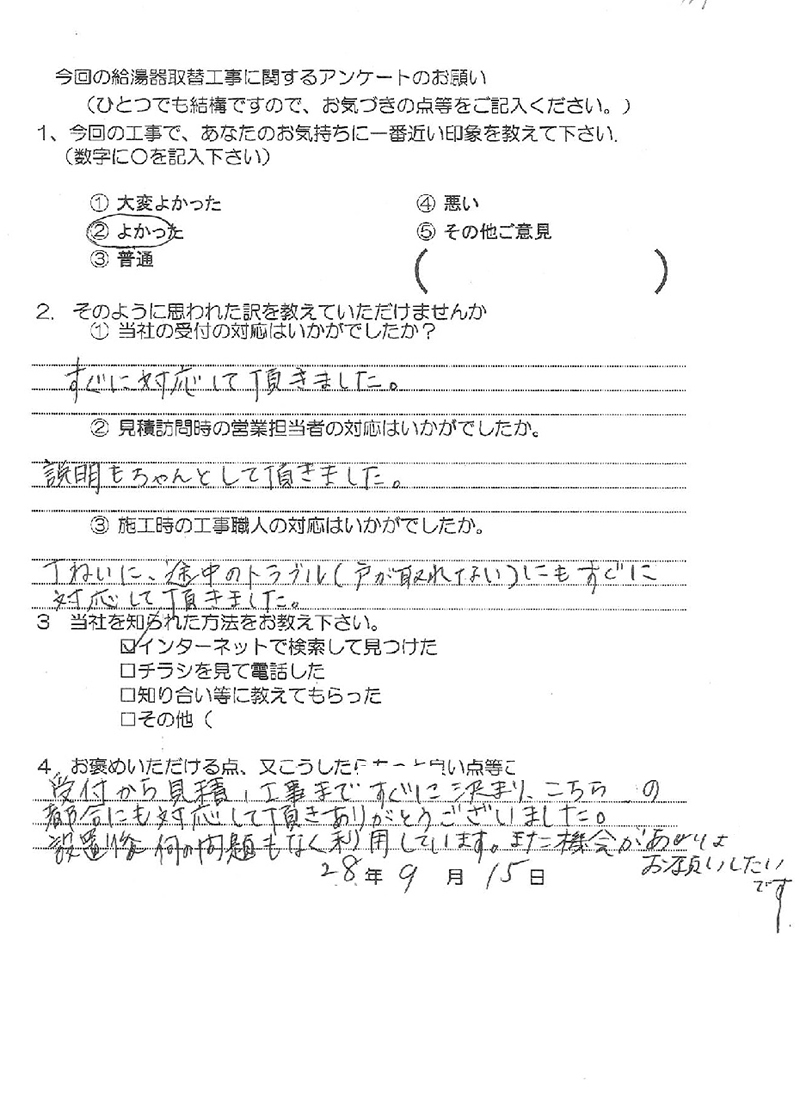 今回の給湯器取替工事に関するアンケートのお願い
(ひとつでも結構ですので、お気づきの点等をご記入ください。)
1、今回の工事で、あなたのお気持ちに一番近い印象を教えて下さい.
(数字に〇を記入下さい)
① 大変よかった ④ 悪い
② よかった ⑤ その他ご意見
③ 普通 ( )
2. そのように思われた訳を教えていただけませんか
① 当社の受付の対応はいかがでしたか?
すぐに対応して頂きました。
② 見積訪問時の営業担当者の対応はいかがでしたか。
説明もちゃんとして頂きました。
③ 施工時の工事職人の対応はいかがでしたか。
丁ねいに、途中のトラブル(戸が取れてない)にもすぐに
対応して頂きました。
3 当社を知られた方法をお教え下さい。
☑インターネットで検索して見つけた
□チラシを見て電話した
□知り合い等に教えてもらった
□その他(
4. お褒めいただける点、又こうしたら 良い点等ご
受付から見積、工事まですぐに決まり、こちらの
都合にも対応して頂きありがとうございました。
設置後何の問題もなく利用しています。また機会があれば
お願いしたい
です
28年 9 月 15日